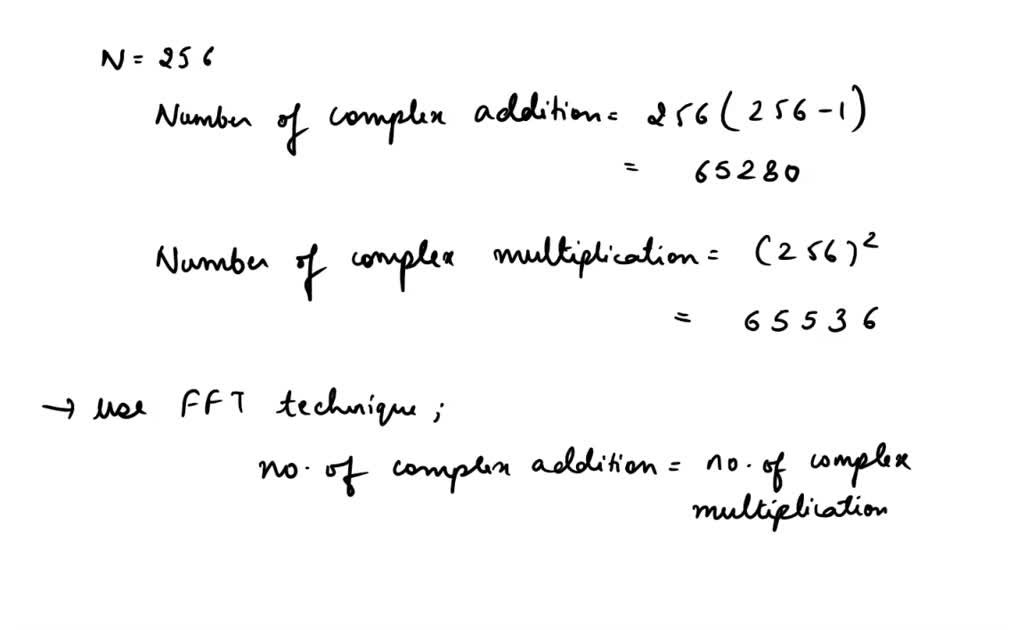 N = 256
Number of complex addition = 256(256-1)
= 65280
Number of complex multiplication = (256)²
= 65536
→ use FFT technique;
no. of complex addition = no. of complex
multiplication